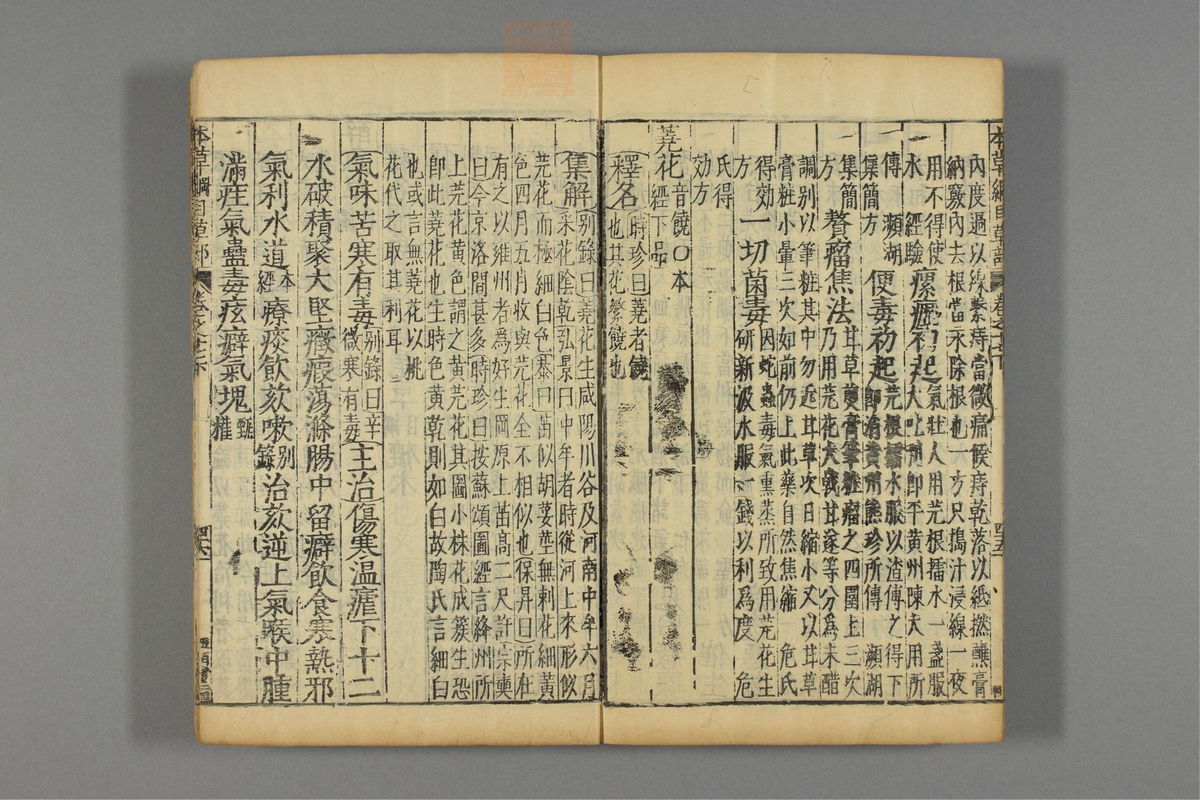 內度過以線繫痔當微痛候痔乾落以紙撚蘸膏
納竅內去根當永除根也一方只搗汁浸線一夜
用不得使
水　經驗　瘰癧初起氣壯人用芫根擂水一盞服
大吐利即平黃州陳大用所
傳　瀕湖
集簡方　便毒初起芫根擂水服以渣傅之得下
即消黃州熊珍所傳　瀕湖
集簡
方　贅瘤焦法甘草煎膏筆粧瘤之四圍上三次
乃用芫花大戟甘遂等分為末醋
調別以筆粧其中勿近甘草次日縮小又以甘草
膏粧小暈三次如前仍上此藥自然焦縮　危氏
得効
方　一切菌毒因蛇蟲毒氣熏蒸所致用芫花生
研新汲水服一錢以利為度　危
氏得
効方
蕘花音饒〇本
經下品
釋名時珍曰蕘者饒
也其花繁饒也
集解別錄曰蕘花生咸陽川谷及河南中牟六月
采花陰乾弘景曰中牟者時從河上來形似
芫花而極細白色恭曰苗似胡荽莖無刺花細黃
色四月五月收與芫花全不相似也保昇曰所在
有之以雍州者為好生岡原上苗高二尺許宗奭
曰今京洛間甚多時珍曰按蘇頌圖經言絳州所
上芫花黃色謂之黃芫花其圖小株花成簇生恐
即此蕘花也生時色黃乾則如白故陶氏言細白
也或言無蕘花以桃
花代之取其利耳
氣味苦寒有毒別錄曰辛
微寒有毒主治傷寒溫瘧下十二
水破積聚大堅癥瘕蕩滌腸中留癖飲食寒熱邪
氣利水道本
經療痰飲欬嗽別
錄治欬逆上氣喉中腫
滿疰氣蠱毒痃癖氣塊甄
權
本草綱目草部